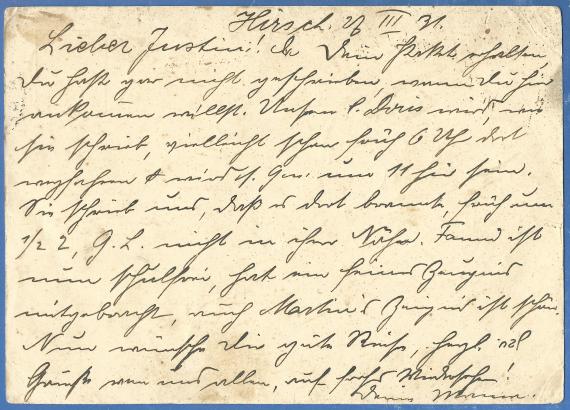 Hirsch. 27 III 31.
Lieber Justin! Dein Paket erhalten,
Du hast gar nicht geschrieben, wann du hier
ankommen willst. Unsere l. Doris wird, wie
sie schrieb, vielleicht schon früh 6 Uhr dort
wegfahren & wird s. G. w. um 11 hier sein.
Sie schrieb uns, daß es dort brannte, früh um
1/2 2, G. L. nicht in ihrer Nähe. Fanni ist
nun schulfrei, hat ein feines Zeugnis
mitgebracht, auch Martin's Zeugnis ist schön.
Nun wünsche Dir gute Reise, herzl.
Grüße von uns allen, auf frohes Wiedersehen!
Deine Mama.